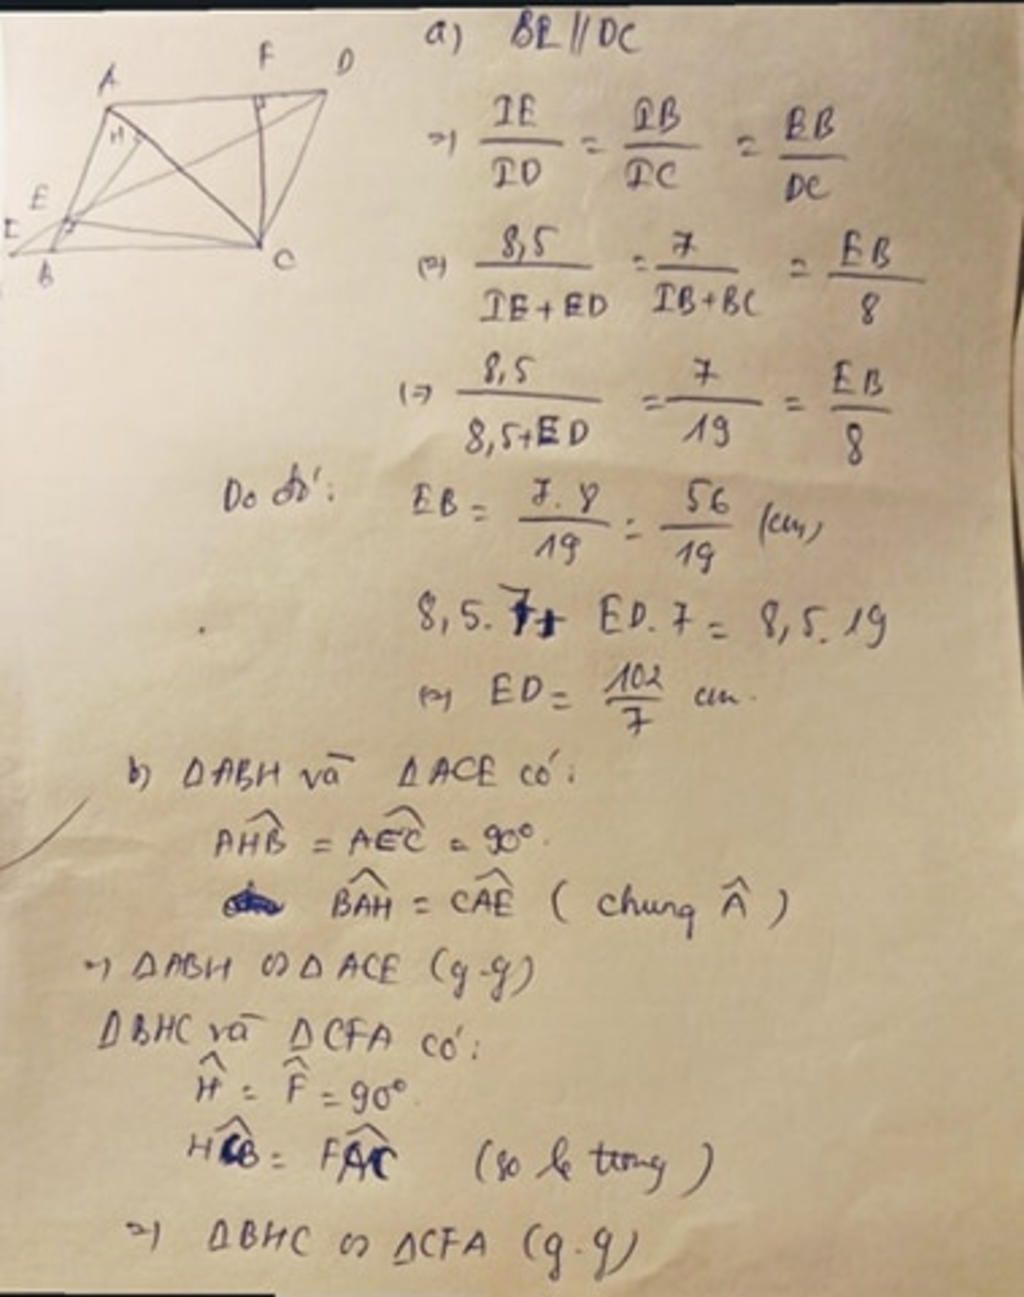 a) BE // DC
F D
A
=) IE/ID = IB/IC = EB/DC
H
E
I
B
C
(=) 8,5/IE + ED = 7/IB + BC = EB/8
(=) 8,5/8,5+ED = 7/19 = EB/8
Do đó: EB = 7.8/19 = 56/19 (cm)
8,5.7+ ED.7 = 8,5.19
(=) ED = 102/7 cm.
b) ΔABH và ΔACE có:
AHB̂ = AEĈ = 90°.
BAĤ = CAÊ ( chung Â )
=) ΔABH ∽ ΔACE (g-g)
ΔBHC và ΔCFA có:
Ĥ = F̂ = 90°.
HCB̂ = FAĈ (so le trong)
=) ΔBHC ∽ ΔCFA (g.g)